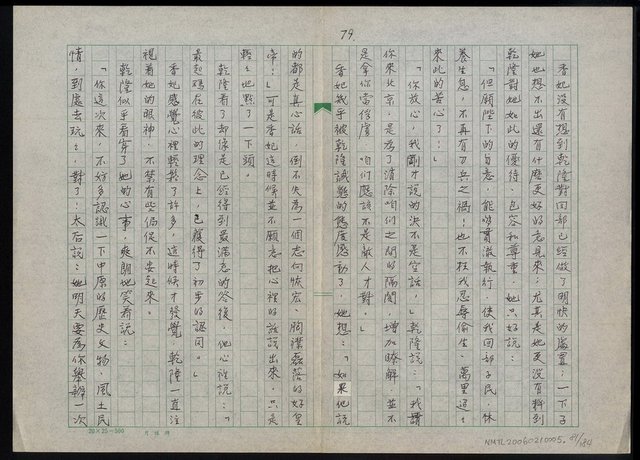 79.
香妃沒有想到乾隆對回部已經做了明快的處置，一下子
她也想不出還有什麼更好的意見來；尤其是她更沒有料到
乾隆對她如此的優待、包容和尊重，她只好說：
「但願陛下的旨意，能夠貫澈執行，使我回部子民，休
養生息，不再有刀兵之禍，也不枉我忍辱偷生、萬里迢迢
來此的苦心了！」
「你放心，我剛才說的決不是空話，」乾隆說：「我請
你來北京，是為了清除咱們之間的隔閡，增加瞭解，並不
是拿你當俘虜，咱們應該不是敵人才對。」
香妃幾乎被乾隆誠懇的態度感動了，她想：「如果他說
的都是真心話，倒不失為一個志向恢宏、胸襟磊落的好皇
帝！」可是香妃這時候並不願意把心裡的話說出來，只是
輕輕地點了一下頭。
乾隆看了却像是已經得到最滿意的答復，他心裡說：「
最起碼在彼此的理念上，已獲得了初步的認同。」
香妃感覺心裡輕鬆了許多，這時候才發覺，乾隆一直注
視着她的眼神，不禁有些侷促不安起來。
乾隆似乎看穿了她的心事，爽朗地笑着說：
「你這次來，不妨多認識一下中原的歷史文物、風土民
情，到處去玩玩，對了！太后說：她明天要為你舉辦一次
20×25=500
NMTL20060210005.